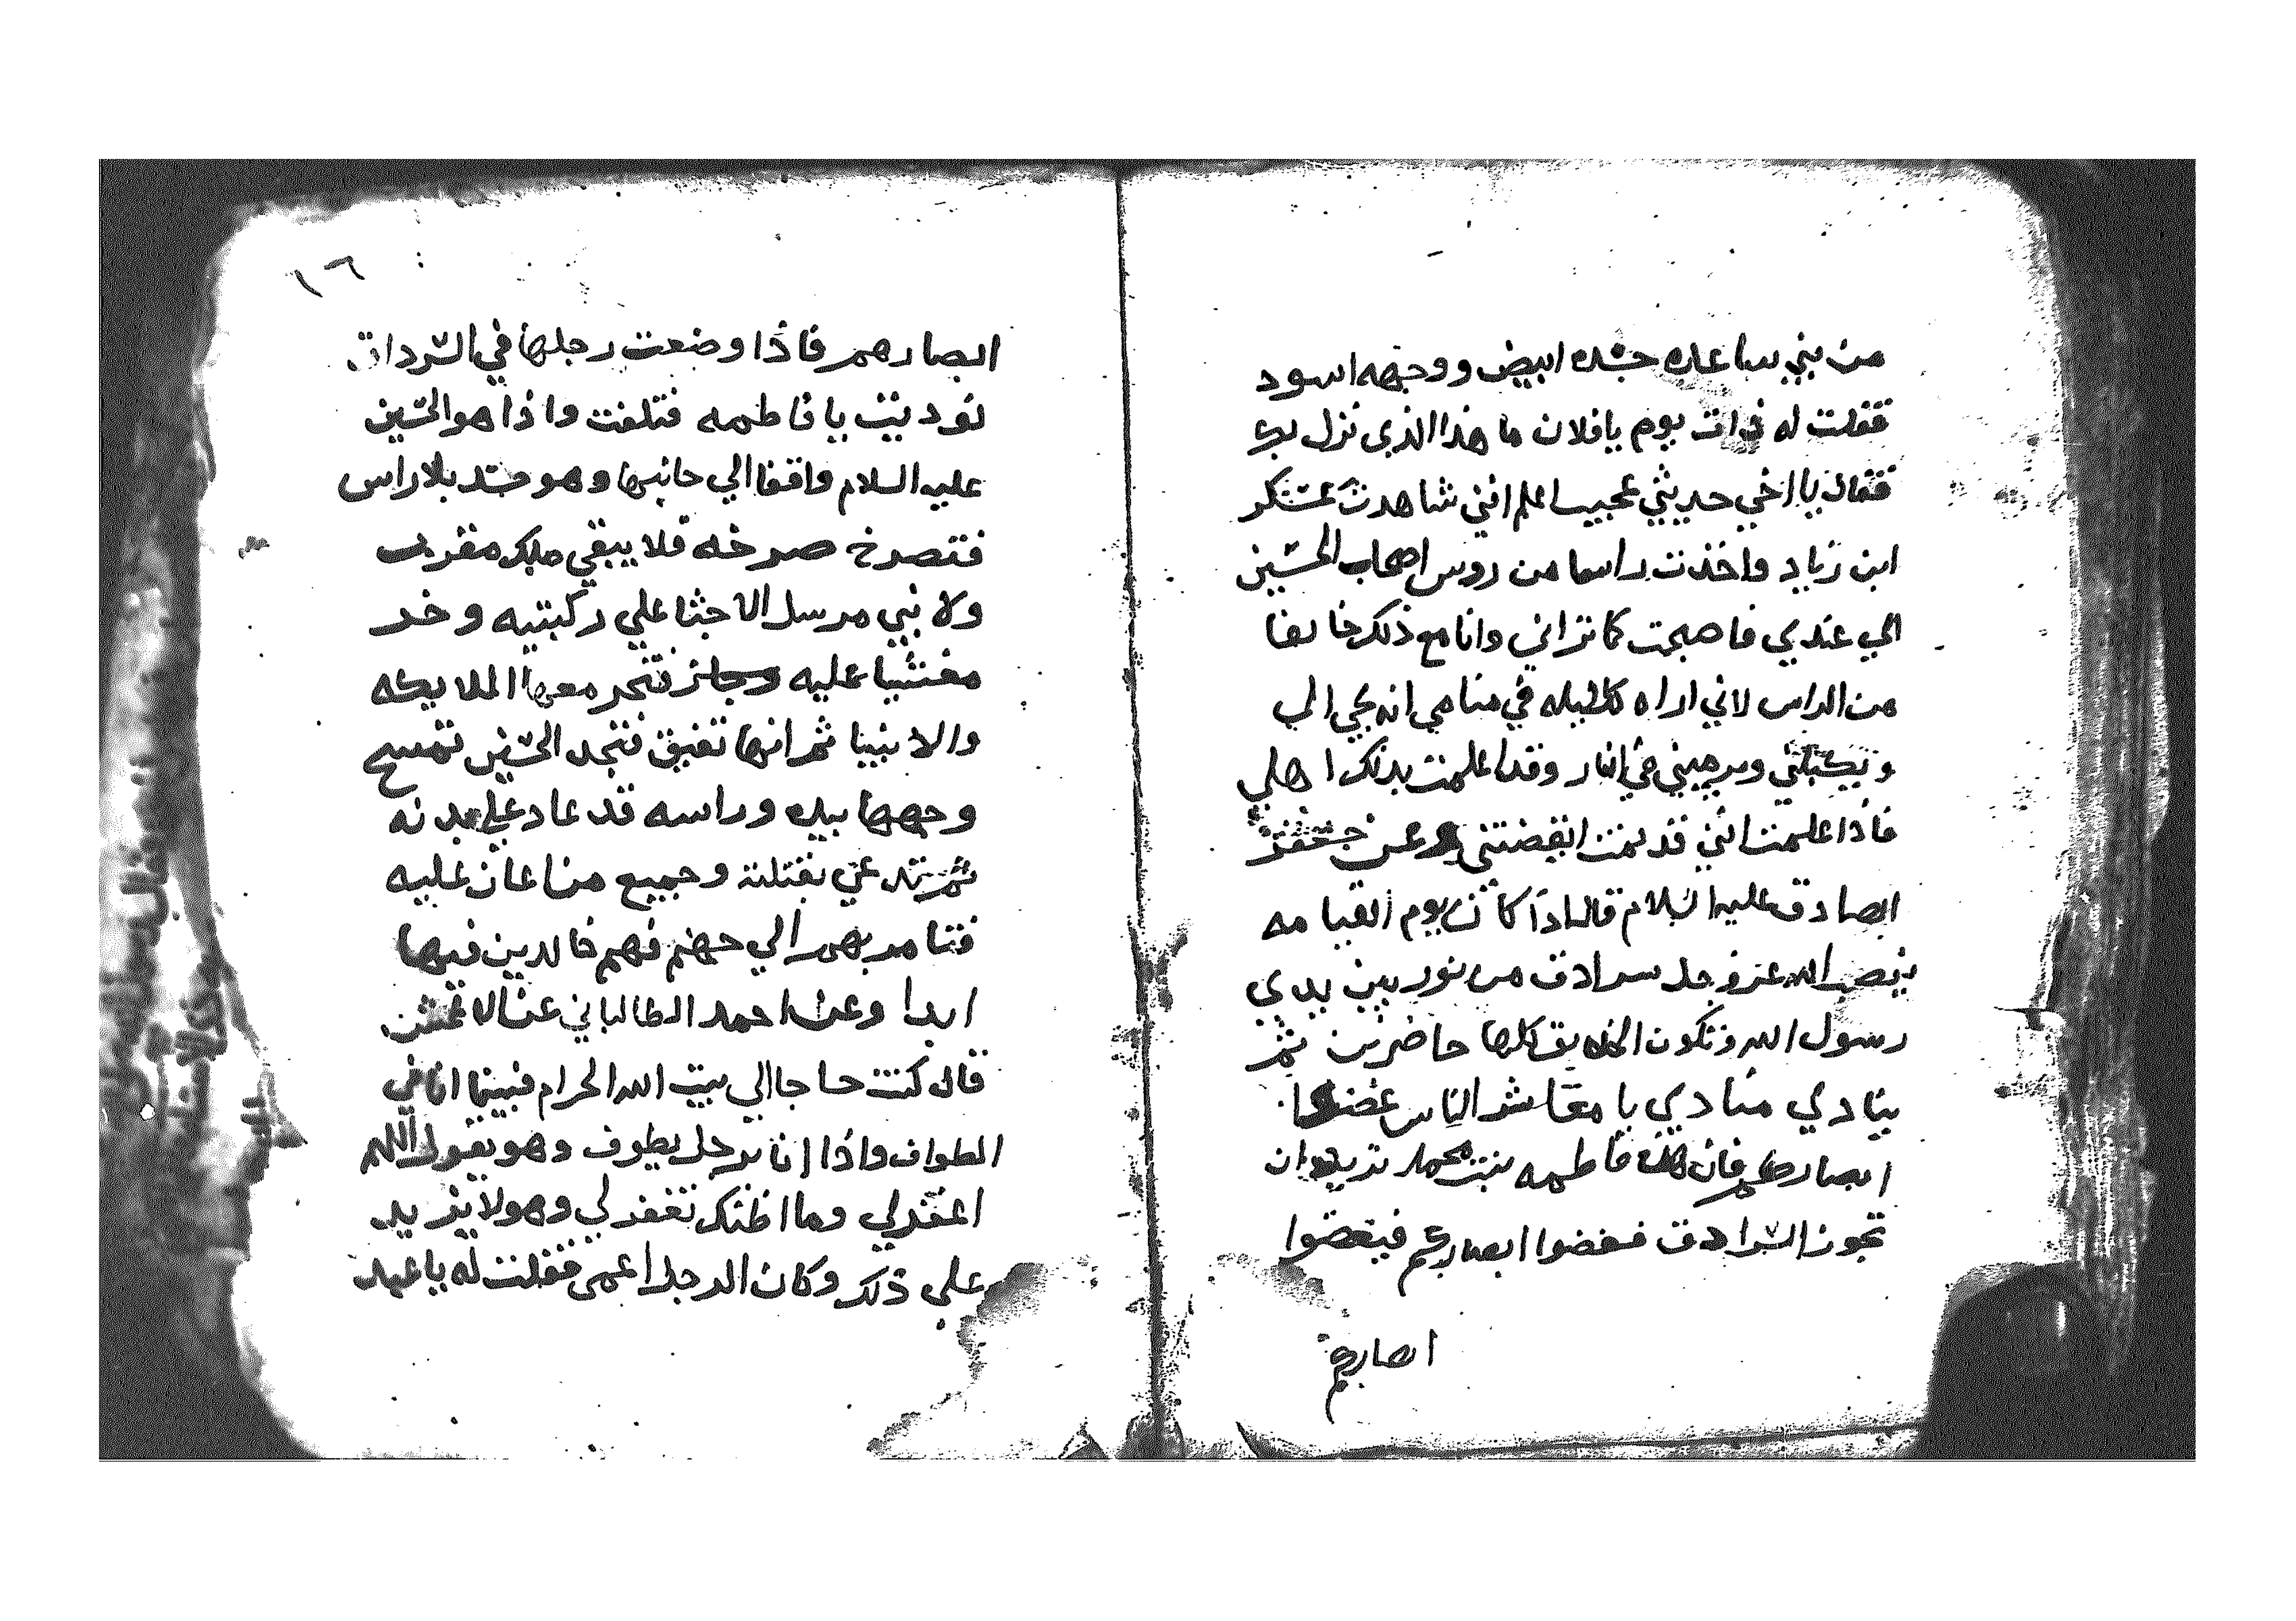 من بني ساعده جسده ابيض ووجهه اسود
فقلت له ذات يوم يا فلان ما هذا الذي نزل بك
فقال يا اخي حديثي عجيب اعلم انني شاهدت عسكر
ابن زياد واخذت راسا من روس اصحاب الحسين
الي عندي فاصبحت كما تراني وانا مع ذلك خايفا
من الراس لاني اراه كل ليله في منامي انه يجي الي
ويكبلني ويرميني في النار وقد اعلمت بذلك اهلي
فاذا علمت انني قد نمت ايقضتني وعن جعفر
الصادق عليه السلام قال اذا كان يوم القيامه
ينصب الله عز وجل سرادق من نور بين يدي
رسول الله وتكون الخلايق كلها حاضرين ثم
ينادي منادي يا معاشر الناس غضوا
ابصاركم فان هذه فاطمه بنت محمد تريد ان
تجوز السرادق فغضوا ابصاركم فيغضوا
ابصارهم
١٦
ابصارهم فاذا وضعت رجلها في السرداق
نوديت يا فاطمه فتلفت واذا هو الحسين
عليه السلام واقفا الي جانبها وهو جسد بلا راس
فتصرخ صرخه فلا يبقي ملك مقرب
ولا نبي مرسل الا جثا علي ركبتيه وخر
مغشيا عليه فتخر معها الملايكه
والانبيا ثم انها تفيق فتجد الحسين تمسح
وجهها بيده وراسه قد عاد علي بدنه
ثم تدعي بقتلته وجميع من اعان عليه
فتامر بهم الي جهنم فهم خالدين فيها
ابدا وعن احمد الطالباني عن الاعمش
قال كنت حاجا الي بيت الله الحرام فبينما انا في
الطواف واذا انا برجل يطوف وهو يقول اللهم
اغفر لي وما اظنك تغفر لي وهو لا يزيد
علي ذلك وكان الرجل اعمي فقلت له يا عبد